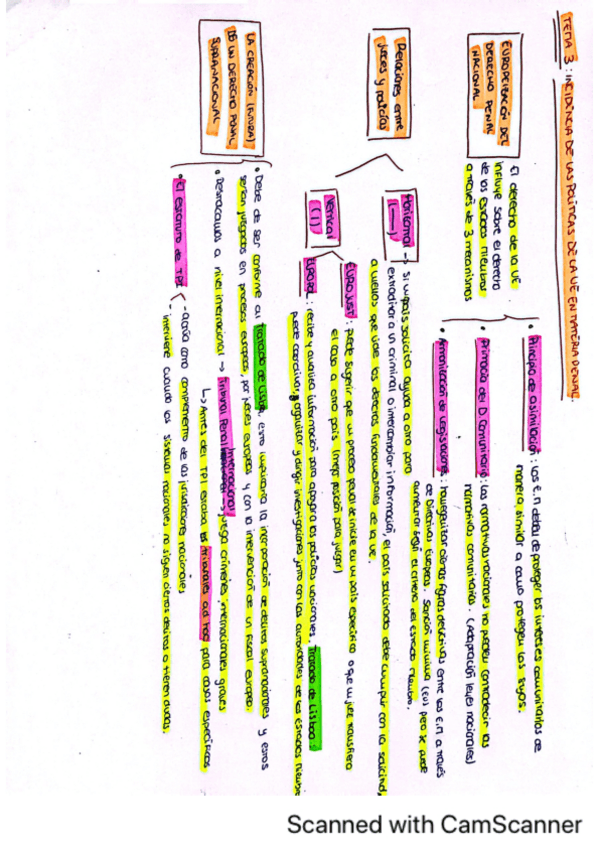 TEMA 3: INCIDENCIA DE LAS POLÍTICAS DE LA UE EN MATERIA PENAL
EUROPEIZACIÓN DEL
DERECHO PENAL
NACIONAL
El derecho de la UE
influye sobre el derecho
de los Estados Miembros
a través de 3 mecanismos
• Principio de asimilación: Los E.M deben de proteger los intereses comunitarios de
manera similar a como protegen los suyos.
• Primacía del D. Comunitario: Las normativas nacionales no pueden contradecir las
normativas comunitarias. (Adaptación leyes nacionales)
• Armonización de Legislaciones: homogeneizar ciertas figuras delictivas entre los E.M a través
de Directivas Europeas. Sanción mínima (EU) pero se puede
aumentar según el criterio del Estado miembro.
Relaciones entre
jueces y policías
Horizontal
(—)
→ Si un país solicita ayuda a otro para
extraditar a un criminal o intercambiar información, el país solicitado debe cumplir con la solicitud,
a menos que viole los derechos fundamentales de la UE.
Vertical
(|)
EUROJUST: puede sugerir que un proceso penal se inicie en un país específico o que un juez transfiera
el caso a otro país (mejor posición para juzgar)
EUROPOL: recibe y analiza información para apoyar a las policías nacionales. Tratado de Lisboa:
puede coordinar, organizar y dirigir investigaciones junto con las autoridades de los Estados Miembros
LA CREACIÓN (FUTURA)
DE UN DERECHO PENAL
SUPRANACIONAL
• Debe de ser conforme al Tratado de Lisboa, esto implicaría la incorporación de delitos supranacionales y estos
serían juzgados en procesos europeos, por jueces europeos y con la intervención de un fiscal europeo.
• Destacamos a nivel internacional → Tribunal Penal Internacional → juzga crímenes internacionales graves
↳ Antes del TPI estaban los Tribunales ad hoc para casos específicos
• El estatuto de TPI
- actúa como complemento de las jurisdicciones nacionales
- interviene cuando los sistemas nacionales no siguen ciertos delitos o tienen dudas.
Scanned with CamScanner